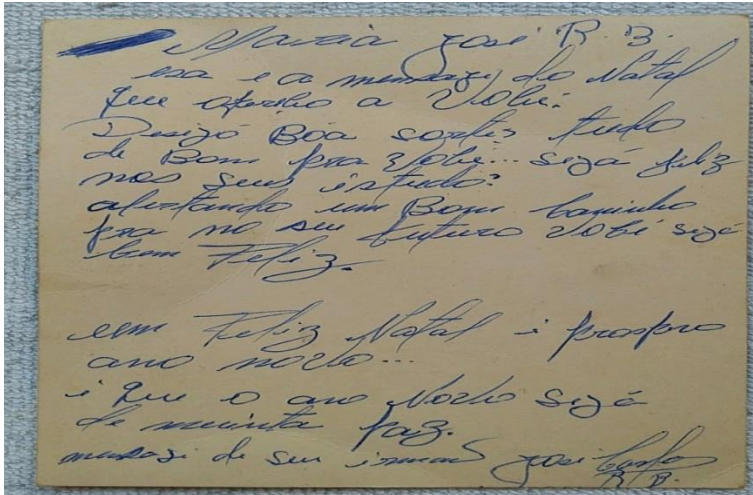 Maria José R. B.
esa e a mensagi do Natal
que ofereho a Vobê.
Desijó Bôa sorte, tudo
de Bom pra Vobê... sejá feliz
nos seus istudo?
um Bom Caminho
pra no seu futuro Vobê sejá
bem Feliz.
um Feliz Natal i prospro
ano novo...
i que o ano Novo Sejá
de muinta paz.
mensagi de seu irmao José Carlos
R B.